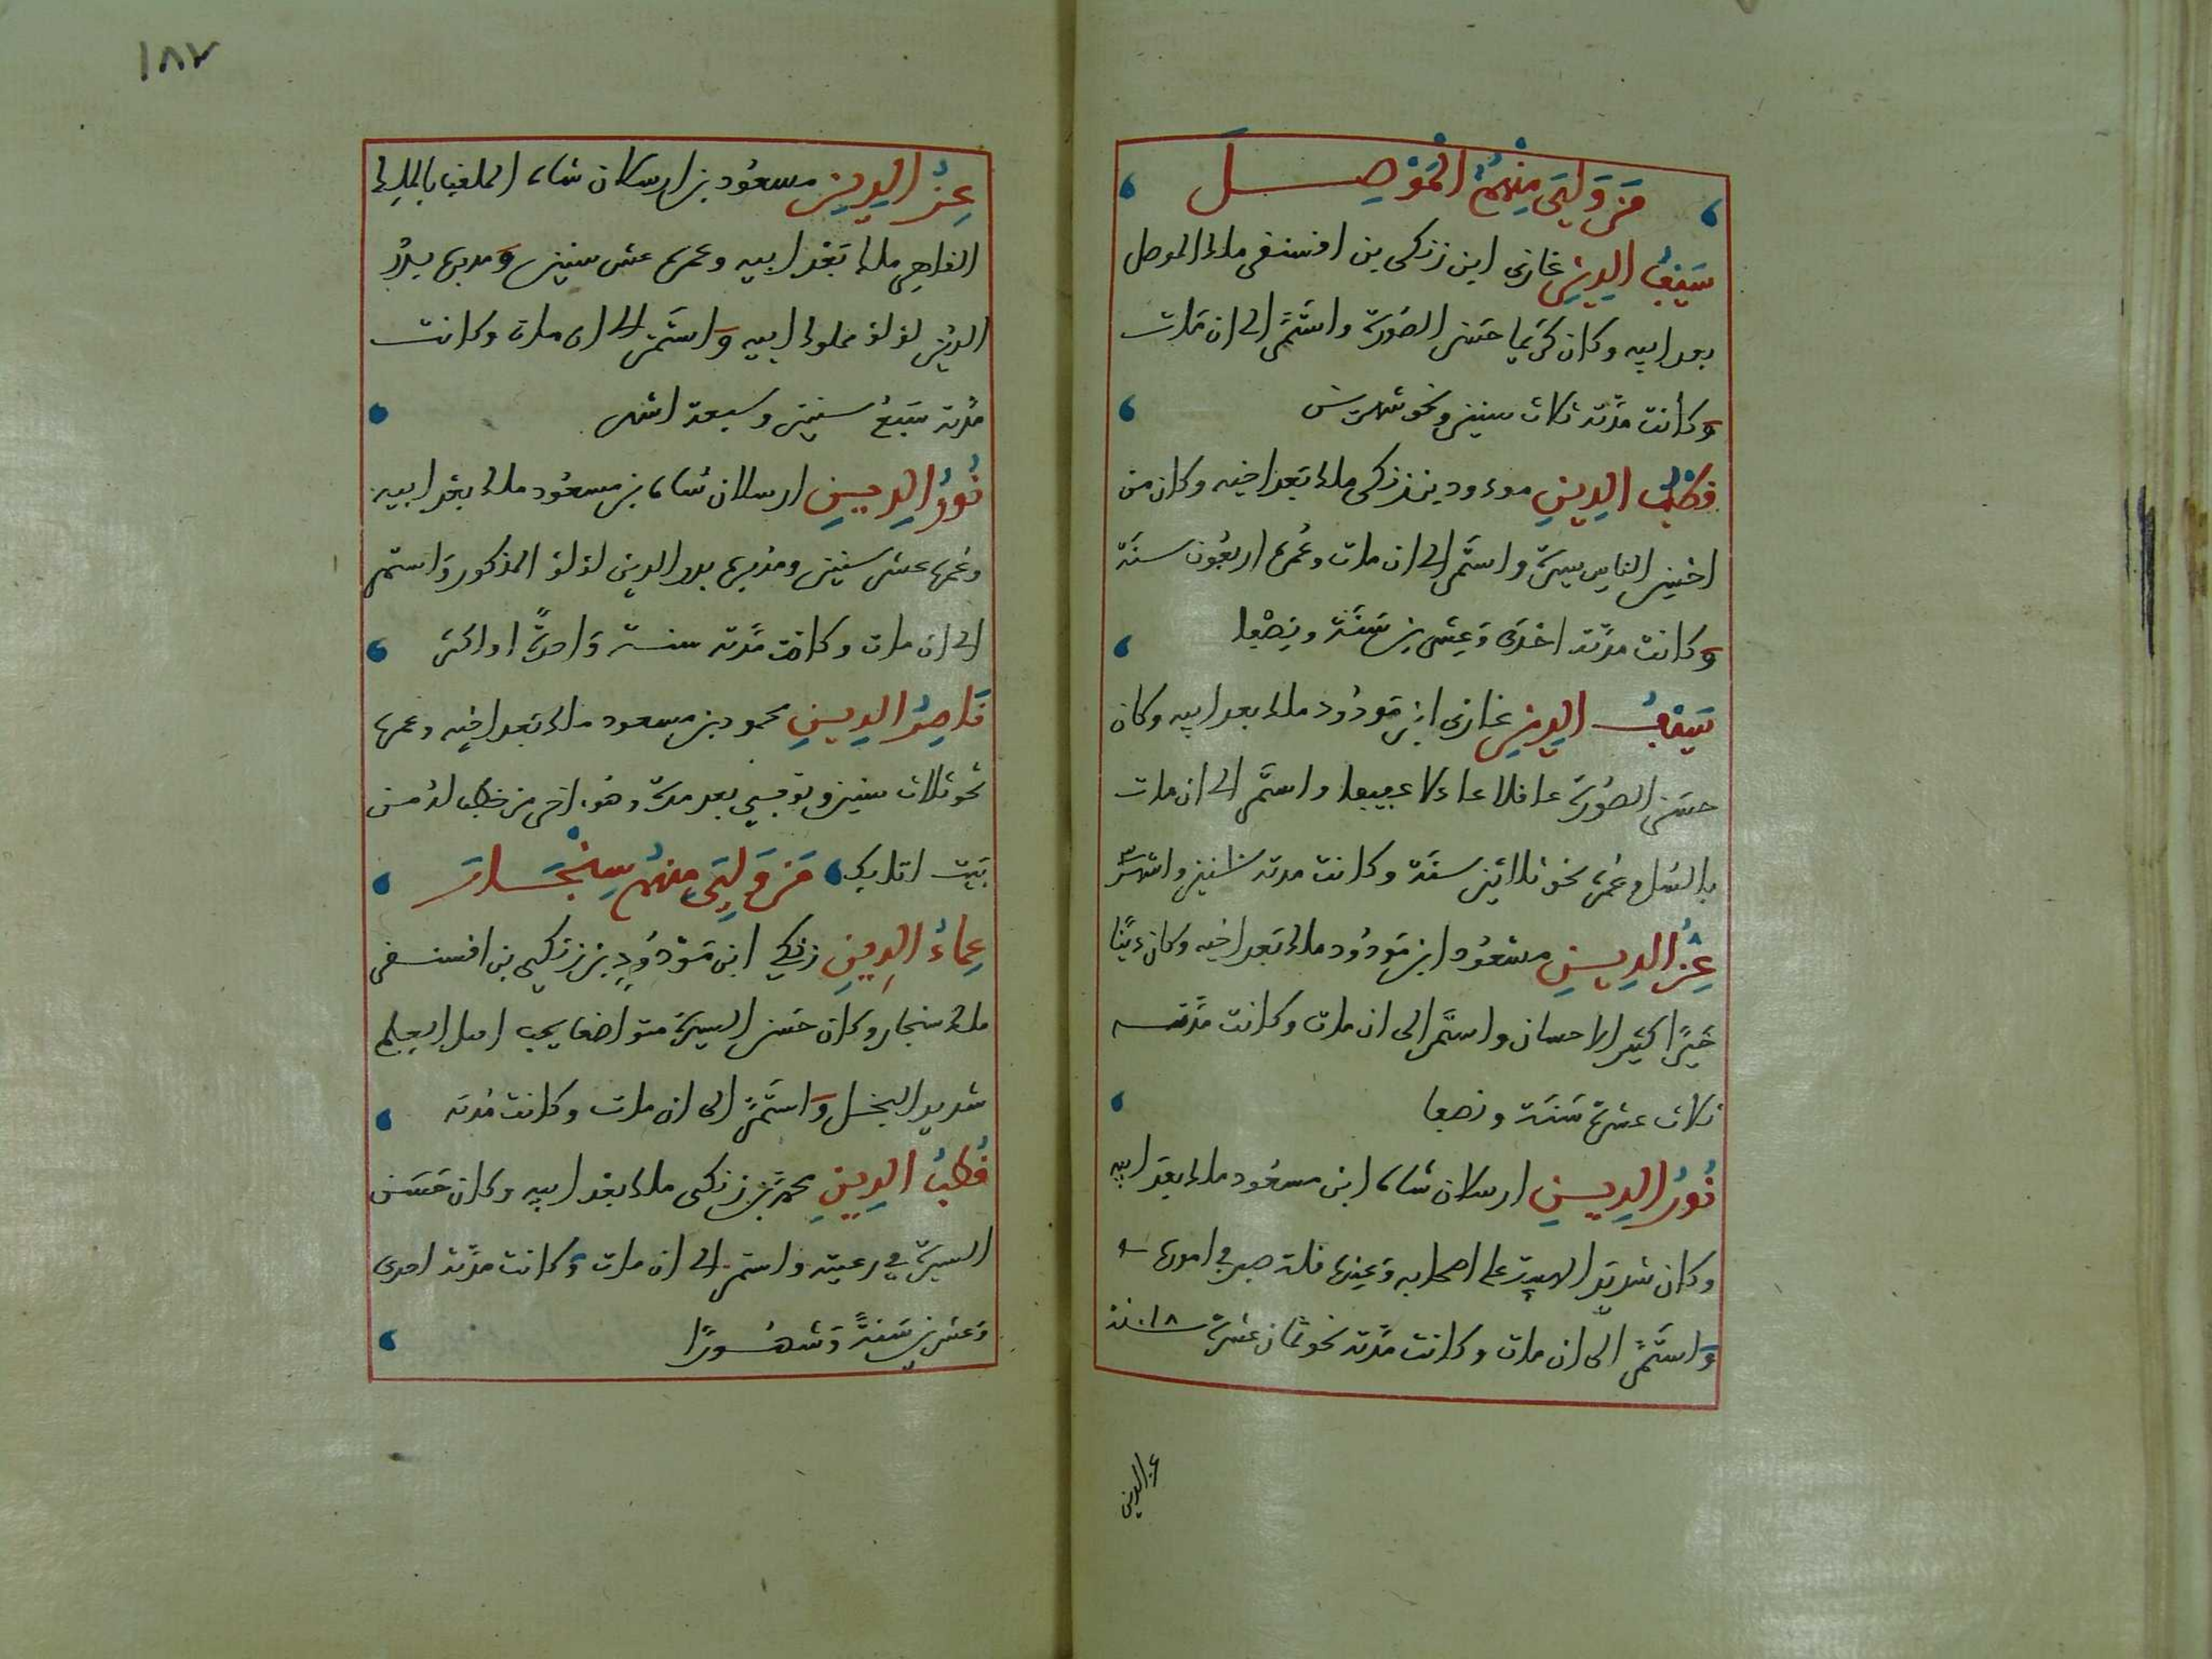 مَنْ وَلِيَ مِنْهُمُ الْمَوْصِلَ
سَيْفُ الدِينِ غازى ابن زنكى بن اقسنقر ملك الموصل
بعد ابيه وكان كريما حسَن الصُورة واستَمَّر الى ان مَات
وكانت مدّته ثلاث سنين ونحو شهرين
قُطْبُ الدِينِ مودود بن زنكى ملك بَعد اخيه وكان من
احْسن الناس سيرة واستَمر الى ان مات وعُمره اربعُون سنَة
وكانت مدّته احْدَى وَعِشرين سَنَة ونِصْفا
سَيْفُ الدِينِ غازى ابْن مَوْدُود ملك بعد ابيه وكان
حسَن الصُورة عاقلا عادلا عفيفا واستمَّر الى ان مات
بالسُل وعُمره نحو ثلاثين سنَة وكانت مدته سنين واشهر
عِزُّ الدِينِ مسْعُود ابن مَوْدُود ملك بَعد اخيه وكان ديّنًا
خَيّرًا كثير الاحسان واستَمَّر الى ان مات وكانت مدّته
ثلاث عشرة سَنَة ونصفا
نُورُ الدِينِ ارسلان شاه ابن مسعُود ملك بعْدَ ابيه
وكان شديدَ الهيبة على اصحابه وَعِنده قلة صبر فى اموره
وَاستَمَّر الى ان مات وكانت مدّته نحو ثمان عشرة سنة ١٨
عز الدين
١٨٧
عِزُّ الدِينِ مسعُود بن ارسلان شاه الملقب بالملك
القاهر ملك بَعْد ابيه وعمره عشر سنين وَمدبره بدْرُ
الدين لؤلؤ مملوك ابيه وَاستَمر الى ان مات وكانت
مُدته سَبعُ سنين وسبعة اشهر
نُورُ الدِينِ ارسلان شاه بن مسعُود ملك بعْدَ ابيه
وعُمره عشر سنين ومدبره بدر الدين لؤلؤ المذكور وَاستمر
الى ان مات وكانت مدّته سنة وَاحدةً او اكثر
نَاصِرُ الدِينِ محمود بن مسعود ملك بَعد اخيه وعمره
نحو ثلاث سنين وتوفي بعد مدة وهُو اخر من خطب لهُ من
بَيت اتابك مَنْ وَلِيَ مِنْهُمْ سِنْجَارَ
عِمادُ الدِينِ زنكي ابن مَوْدُودِ بن زنكي بن اقسنقر
ملك سنجار وكان حَسَن السيرة متواضعا يحب اهل العِلم
شديد البخل وَاستَمَّر الى ان مات وكانت مُدته
قُطْبُ الدِينِ محمد بن زنكى ملك بعْدَ ابيه وكان حَسَن
السيرة في رعيته واستمر الى ان مات وَكانت مدّته احدى
وَعشرين سَنةً وَشهُورًا